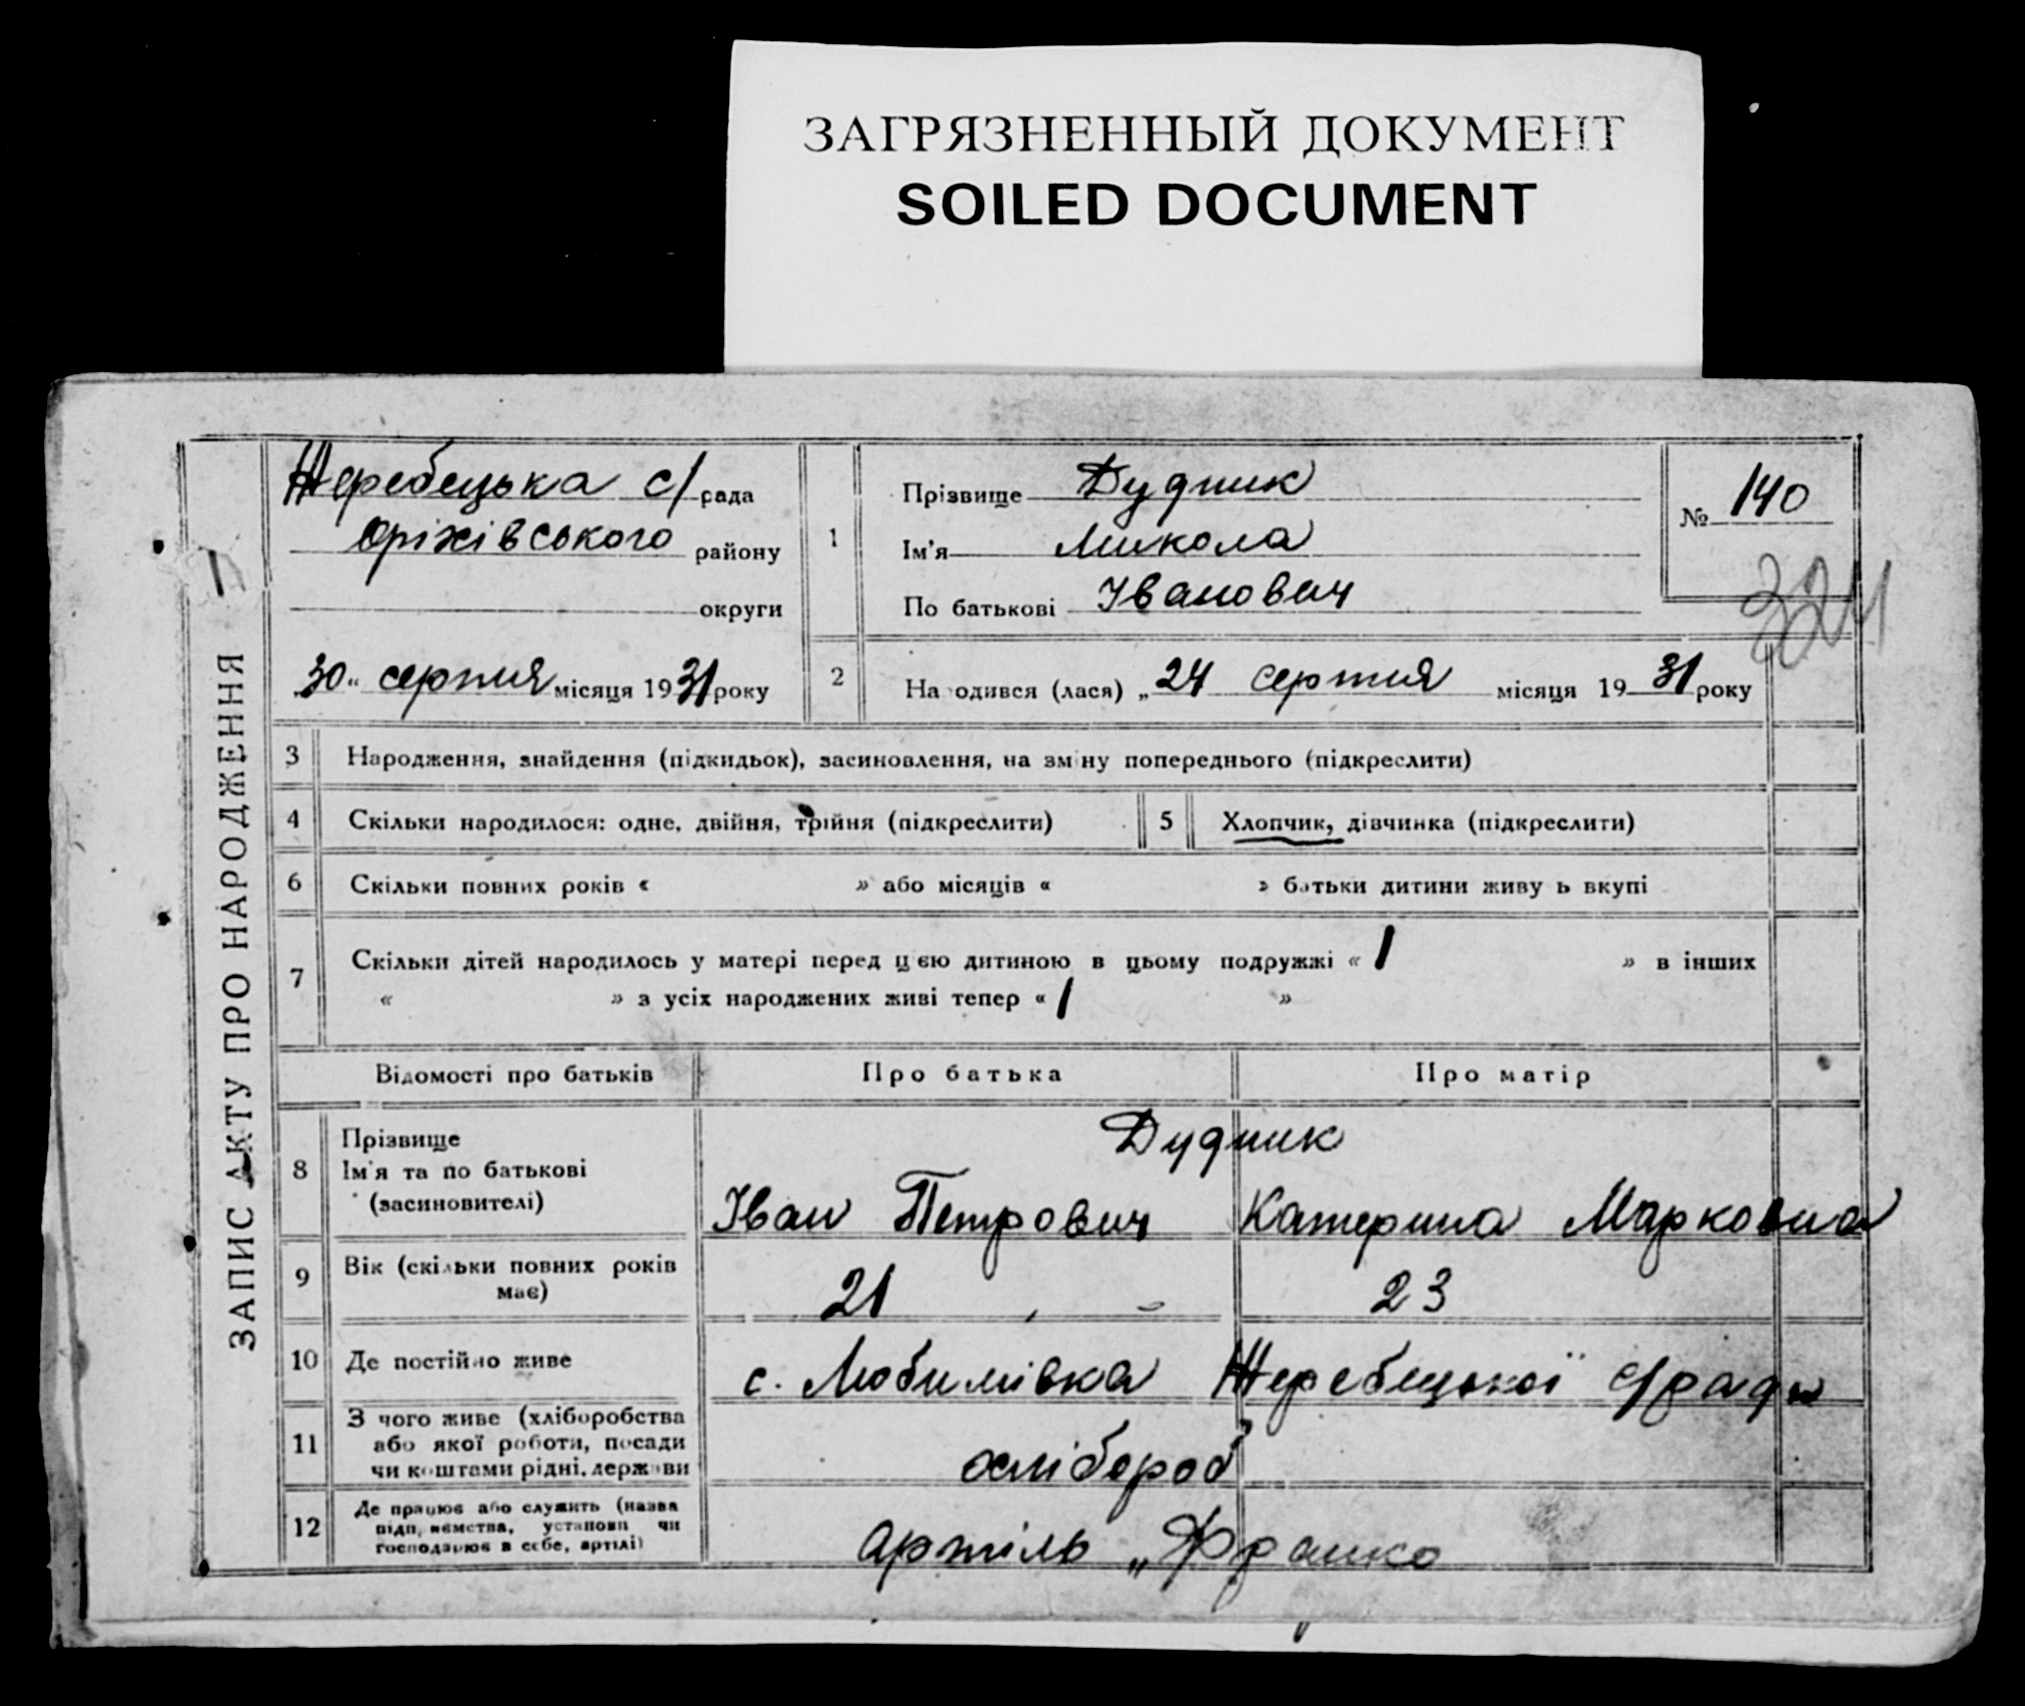 ЗАГРЯЗНЕННЫЙ ДОКУМЕНТ
SOILED DOCUMENT
ЗАПИС АКТУ ПРО НАРОДЖЕННЯ
Жеребецька с/рада
Оріхівського району
округи
„30“ серпня місяця 1931 року
1
Прізвище Дудник
Ім'я Микола
По батькові Іванович
№ 140
324
2 На одився (лася) „24 серпня місяця 1931 року
3 Народження, знайдення (підкидьок), засиновлення, на зміну попереднього (підкреслити)
4 Скільки народилося: одне, двійня, трійня (підкреслити) 5 Хлопчик, дівчинка (підкреслити)
6 Скільки повних років « » або місяців « » батьки дитини живуть вкупі
7 Скільки дітей народилось у матері перед цією дитиною в цьому подружжі « 1 » в інших
« » з усіх народжених живі тепер « 1 »
Відомості про батьків Про батька Про матір
8 Прізвище
Ім'я та по батькові
(засиновителі)
Дудник
Іван Петрович Катерина Марковна
9 Вік (скільки повних років
має)
21 23
10 Де постійно живе с. Любимівка Жеребецької с/ради
11 З чого живе (хліборобства
або якої роботи, посади
чи коштами рідні, держави
хлібороб
12 Де працює або служить (назва
підприємства, установи чи
господарює в себе, артілі)
артіль „Франко